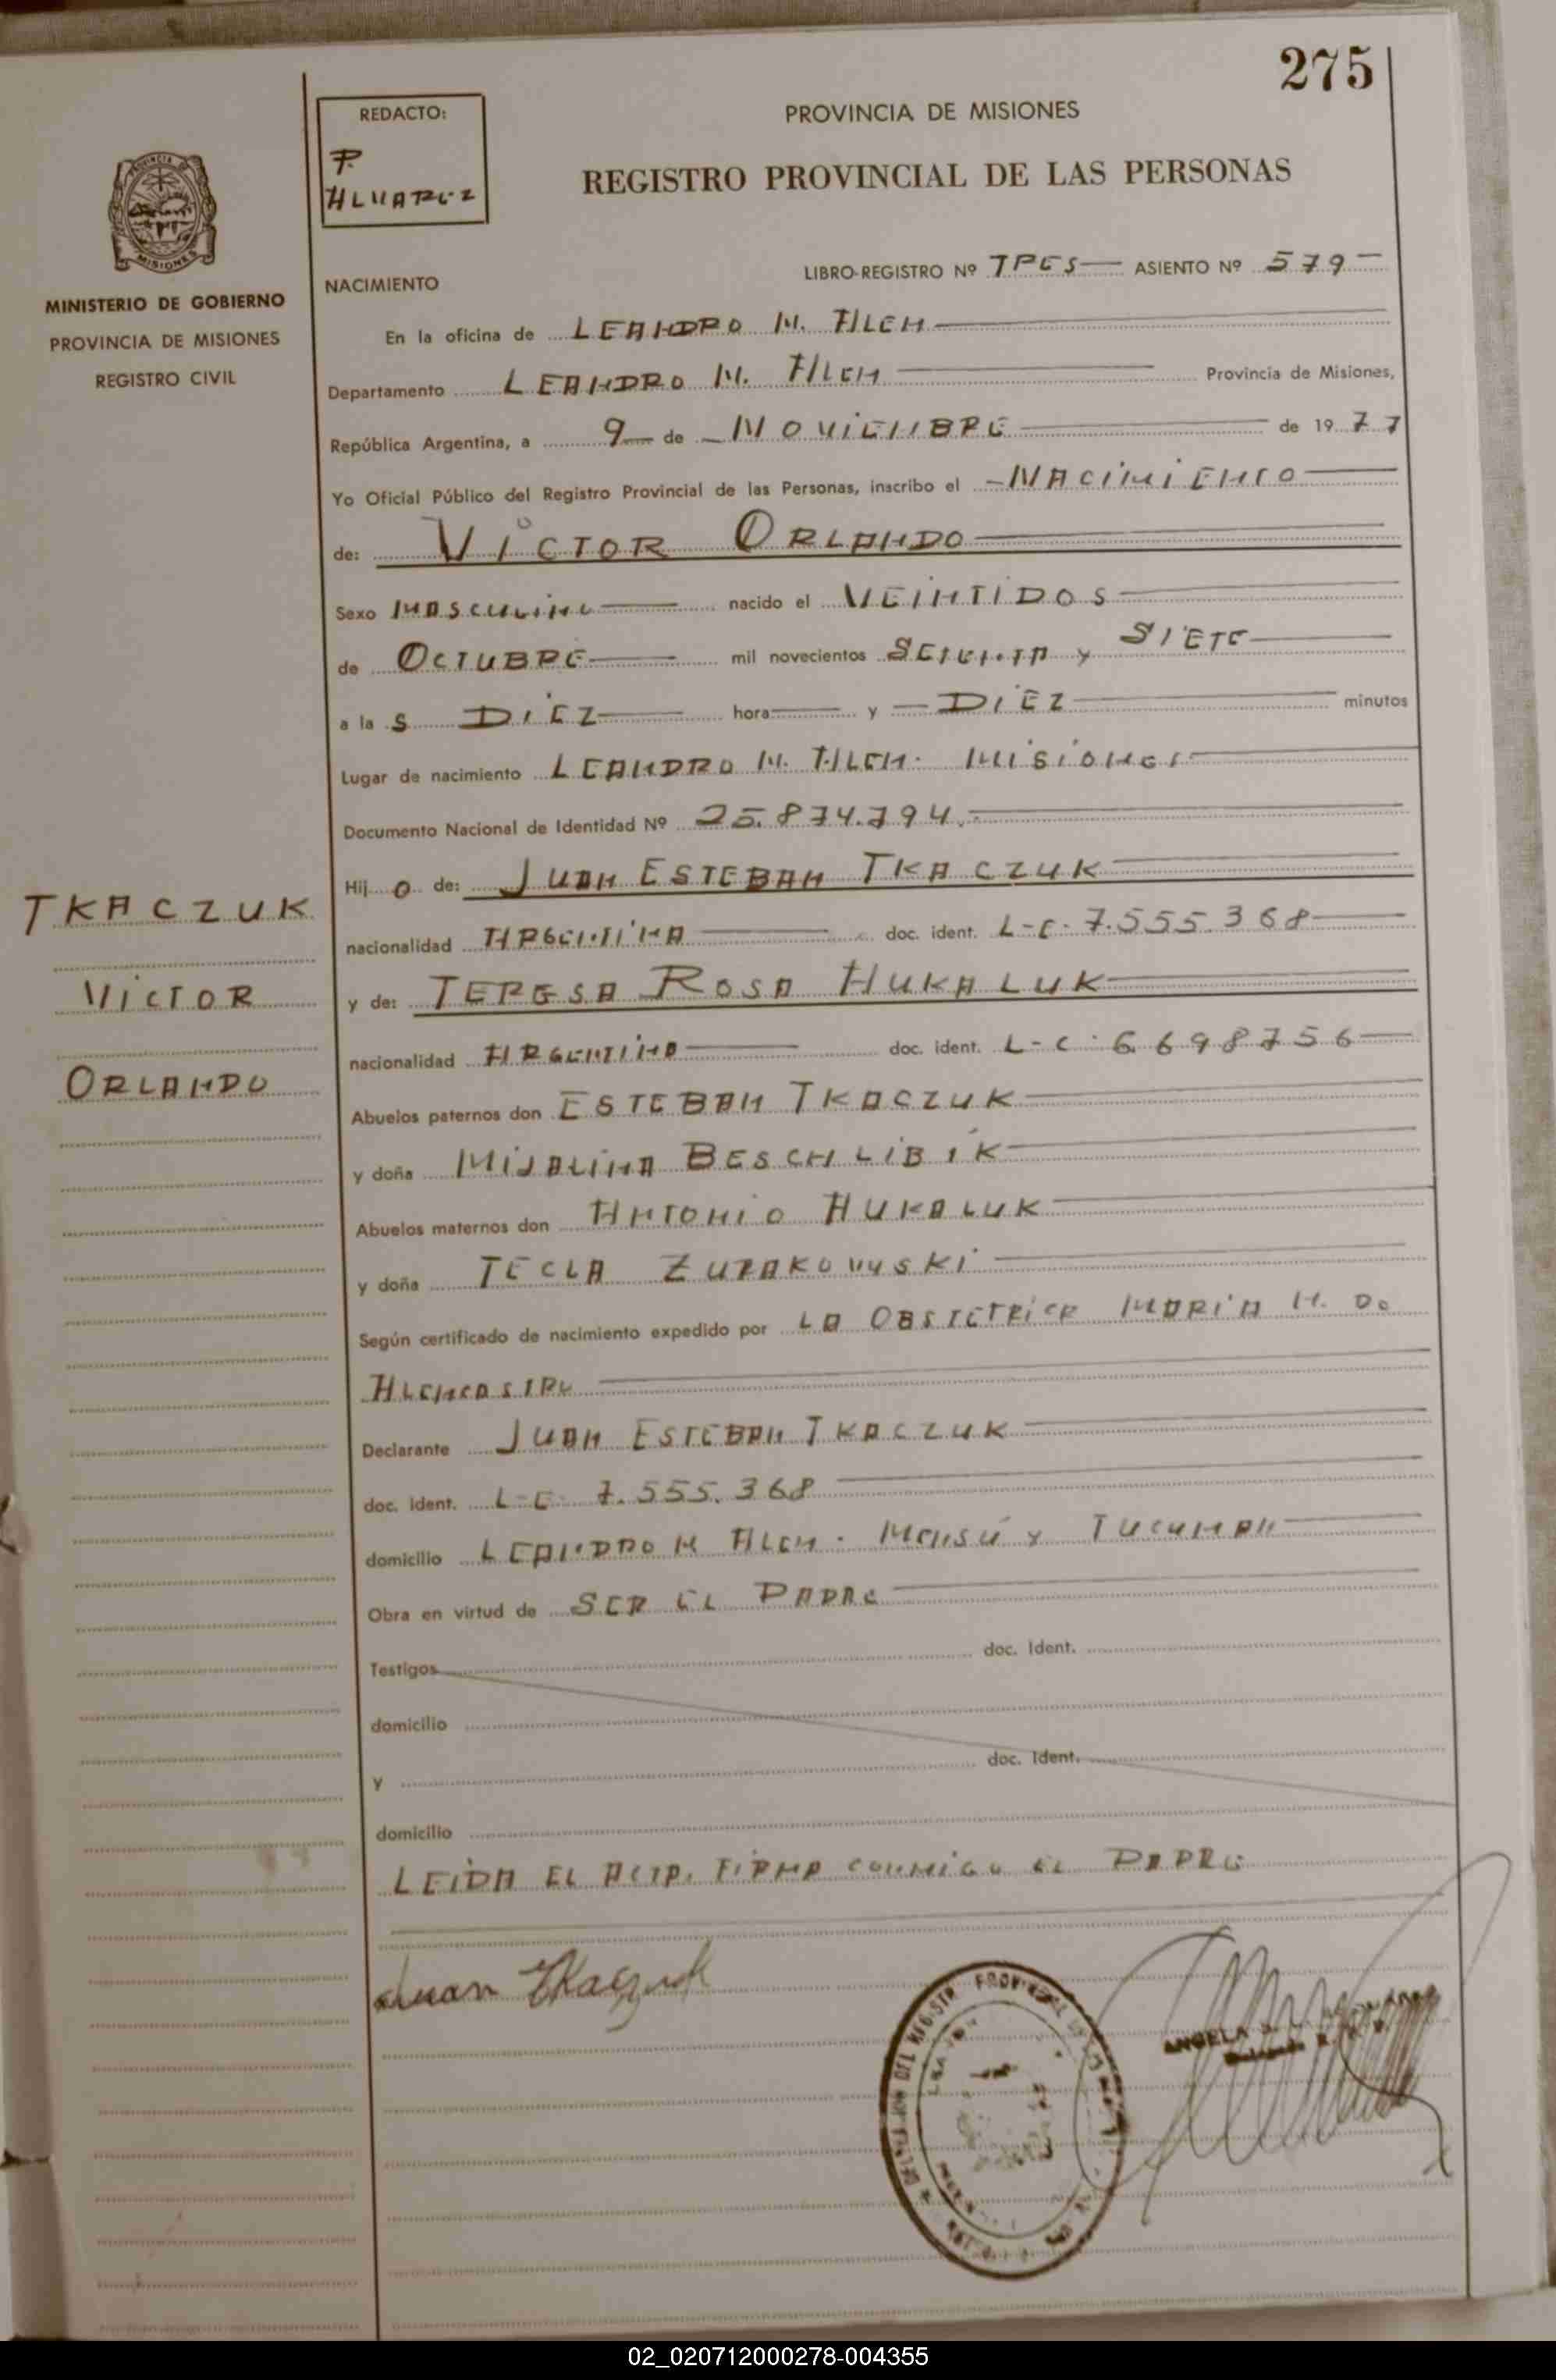 275
REDACTO:
P.
ALVAREZ
PROVINCIA DE MISIONES
REGISTRO PROVINCIAL DE LAS PERSONAS
PROVINCIA DE
MISIONES
MINISTERIO DE GOBIERNO
PROVINCIA DE MISIONES
REGISTRO CIVIL
NACIMIENTO
LIBRO-REGISTRO Nº TRES ASIENTO Nº 579
En la oficina de LEANDRO N. ALEM
Departamento LEANDRO N. ALEM Provincia de Misiones,
República Argentina, a 9 de NOVIEMBRE de 1977
Yo Oficial Público del Registro Provincial de las Personas, inscribo el NACIMIENTO
de: VICTOR ORLANDO
Sexo MASCULINO nacido el VEINTIDOS
de OCTUBRE mil novecientos SETENTA Y SIETE
a las DIEZ hora y DIEZ minutos
Lugar de nacimiento LEANDRO N. ALEM. MISIONES
Documento Nacional de Identidad Nº 25.874.794.
Hijo de: JUAN ESTEBAN TKACZUK
nacionalidad ARGENTINA doc. ident. L-E. 7.555.368
y de: TERESA ROSA HUKALUK
nacionalidad ARGENTINA doc. ident. L-C. 6.698756
Abuelos paternos don ESTEBAN TKACZUK
y doña MIJALINA BESCHLIBIK
Abuelos maternos don ANTONIO HUKALUK
y doña TECLA ZURAKOVYSKI
Según certificado de nacimiento expedido por LA OBSTETRICA MARIA H. DE
ALENCASTRE
Declarante JUAN ESTEBAN TKACZUK
doc. ident. L-E. 7.555.368
domicilio LEANDRO N ALEM. MENSÚ Y TUCUMAN
Obra en virtud de SER EL PADRE
Testigos doc. Ident.
domicilio
y doc. Ident.
domicilio
LEIDA EL ACTA, FIRMA CONMIGO EL PADRE
TKACZUK
VICTOR
ORLANDO
Juan Tkaczuk
DEL REGISTR. PROVINCIAL DE
ANGELA
02_020712000278-004355